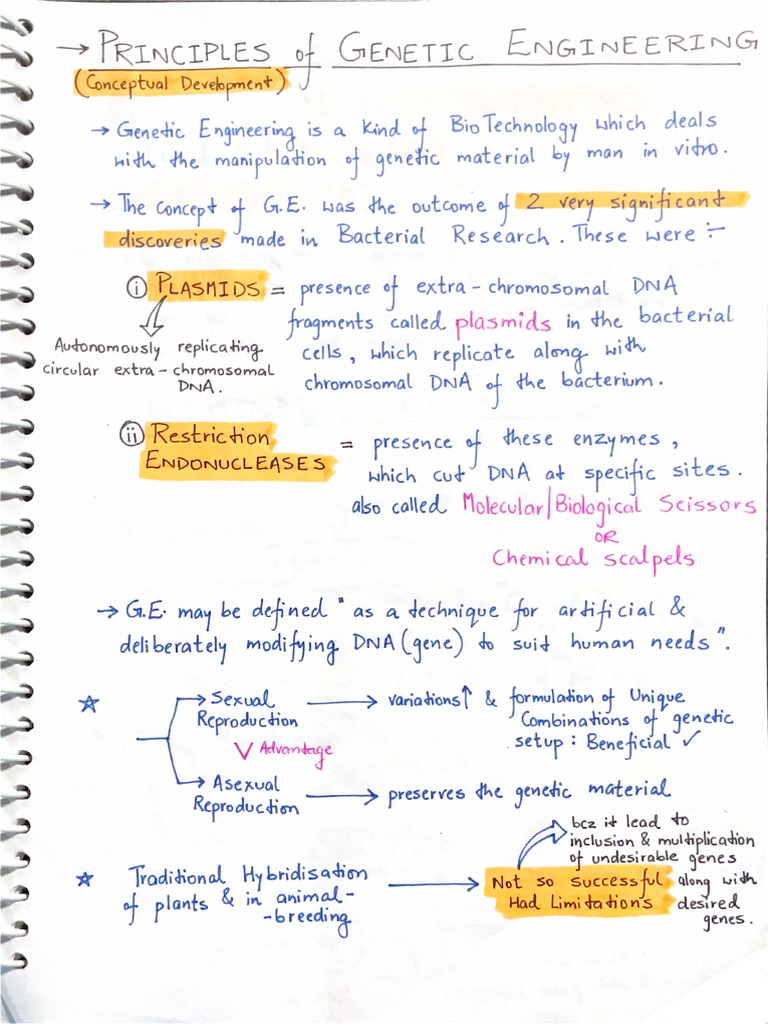 → PRINCIPLES of GENETIC ENGINEERING
(Conceptual Development)
→ Genetic Engineering is a kind of BioTechnology which deals
with the manipulation of genetic material by man in vitro.
→ The concept of G.E. was the outcome of 2 very significant
discoveries made in Bacterial Research. These were :-
(i) PLASMIDS = presence of extra-chromosomal DNA
fragments called plasmids in the bacterial
cells, which replicate along with
chromosomal DNA of the bacterium.
Autonomously replicating
circular extra-chromosomal
DNA.
(ii) Restriction
ENDONUCLEASES
= presence of these enzymes,
which cut DNA at specific sites.
also called Molecular/Biological Scissors
OR
Chemical scalpels
→ G.E. may be defined "as a technique for artificial &
deliberately modifying DNA (gene) to suit human needs".
☆ → Sexual
Reproduction
→ variations↑ & formulation of Unique
Combinations of genetic
setup : Beneficial ✓
V Advantage
→ Asexual
Reproduction
→ preserves the genetic material
bcz it lead to
inclusion & multiplication
of undesirable genes
along with
desired
genes.
☆ Traditional Hybridisation
of plants & in animal-
-breeding
→ Not so successful
Had Limitations